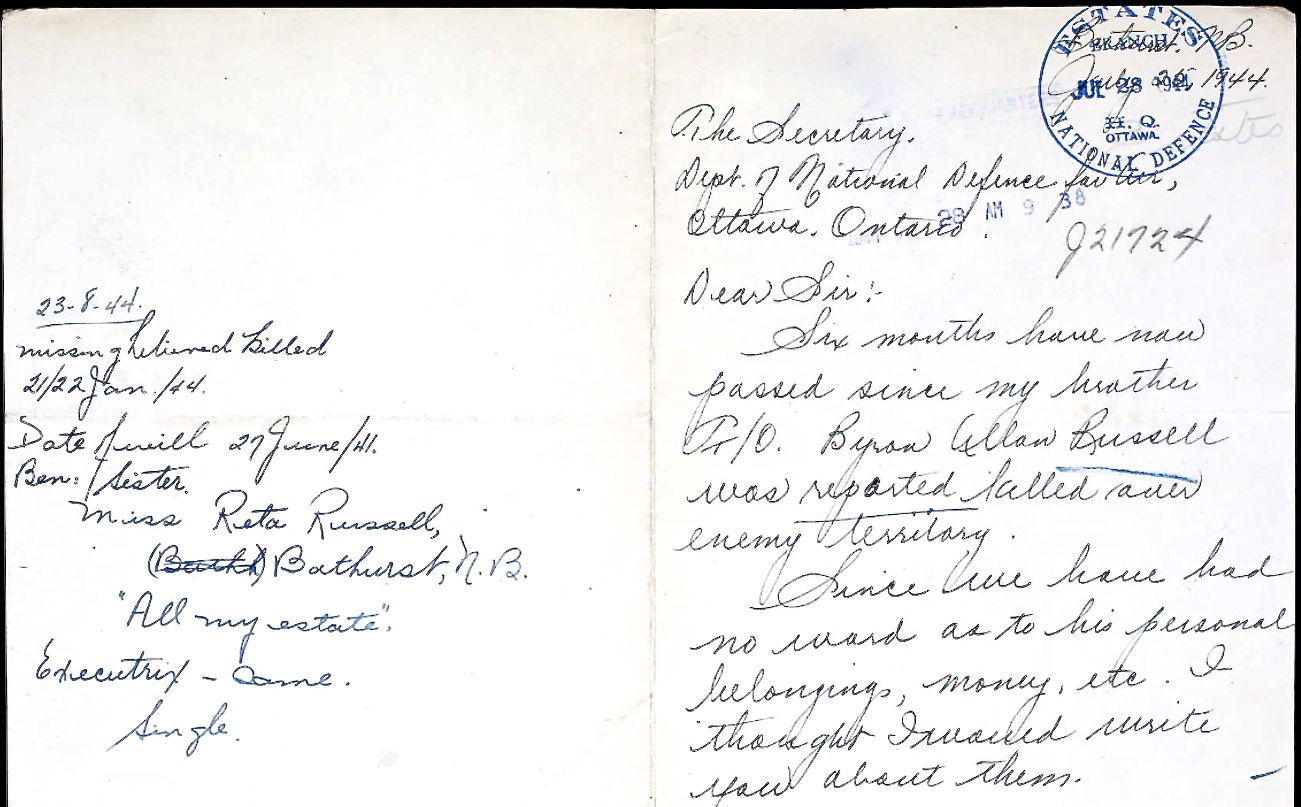 23-8-44.
missing believed killed
21/22 Jan./44.
Date of will 27 June/41.
Ben: Sister.
Miss Reta Russell,
Bathurst, N.B.
"All my estate".
Executrix - same.
Single.
ESTATES
BRANCH
JUL 28 1944
H. Q.
OTTAWA.
NATIONAL DEFENCE
Bathurst, N.B.
July 25, 1944.
The Secretary.
Dept. of National Defence for Air,
28 AM 9 38
Ottawa, Ontario.
J21724
Dear Sir:-
Six months have now
passed since my brother
F/O. Byron Allan Russell
was reported killed over
enemy territory.
Since we have had
no word as to his personal
belongings, money, etc. I
thought I would write
you about them.